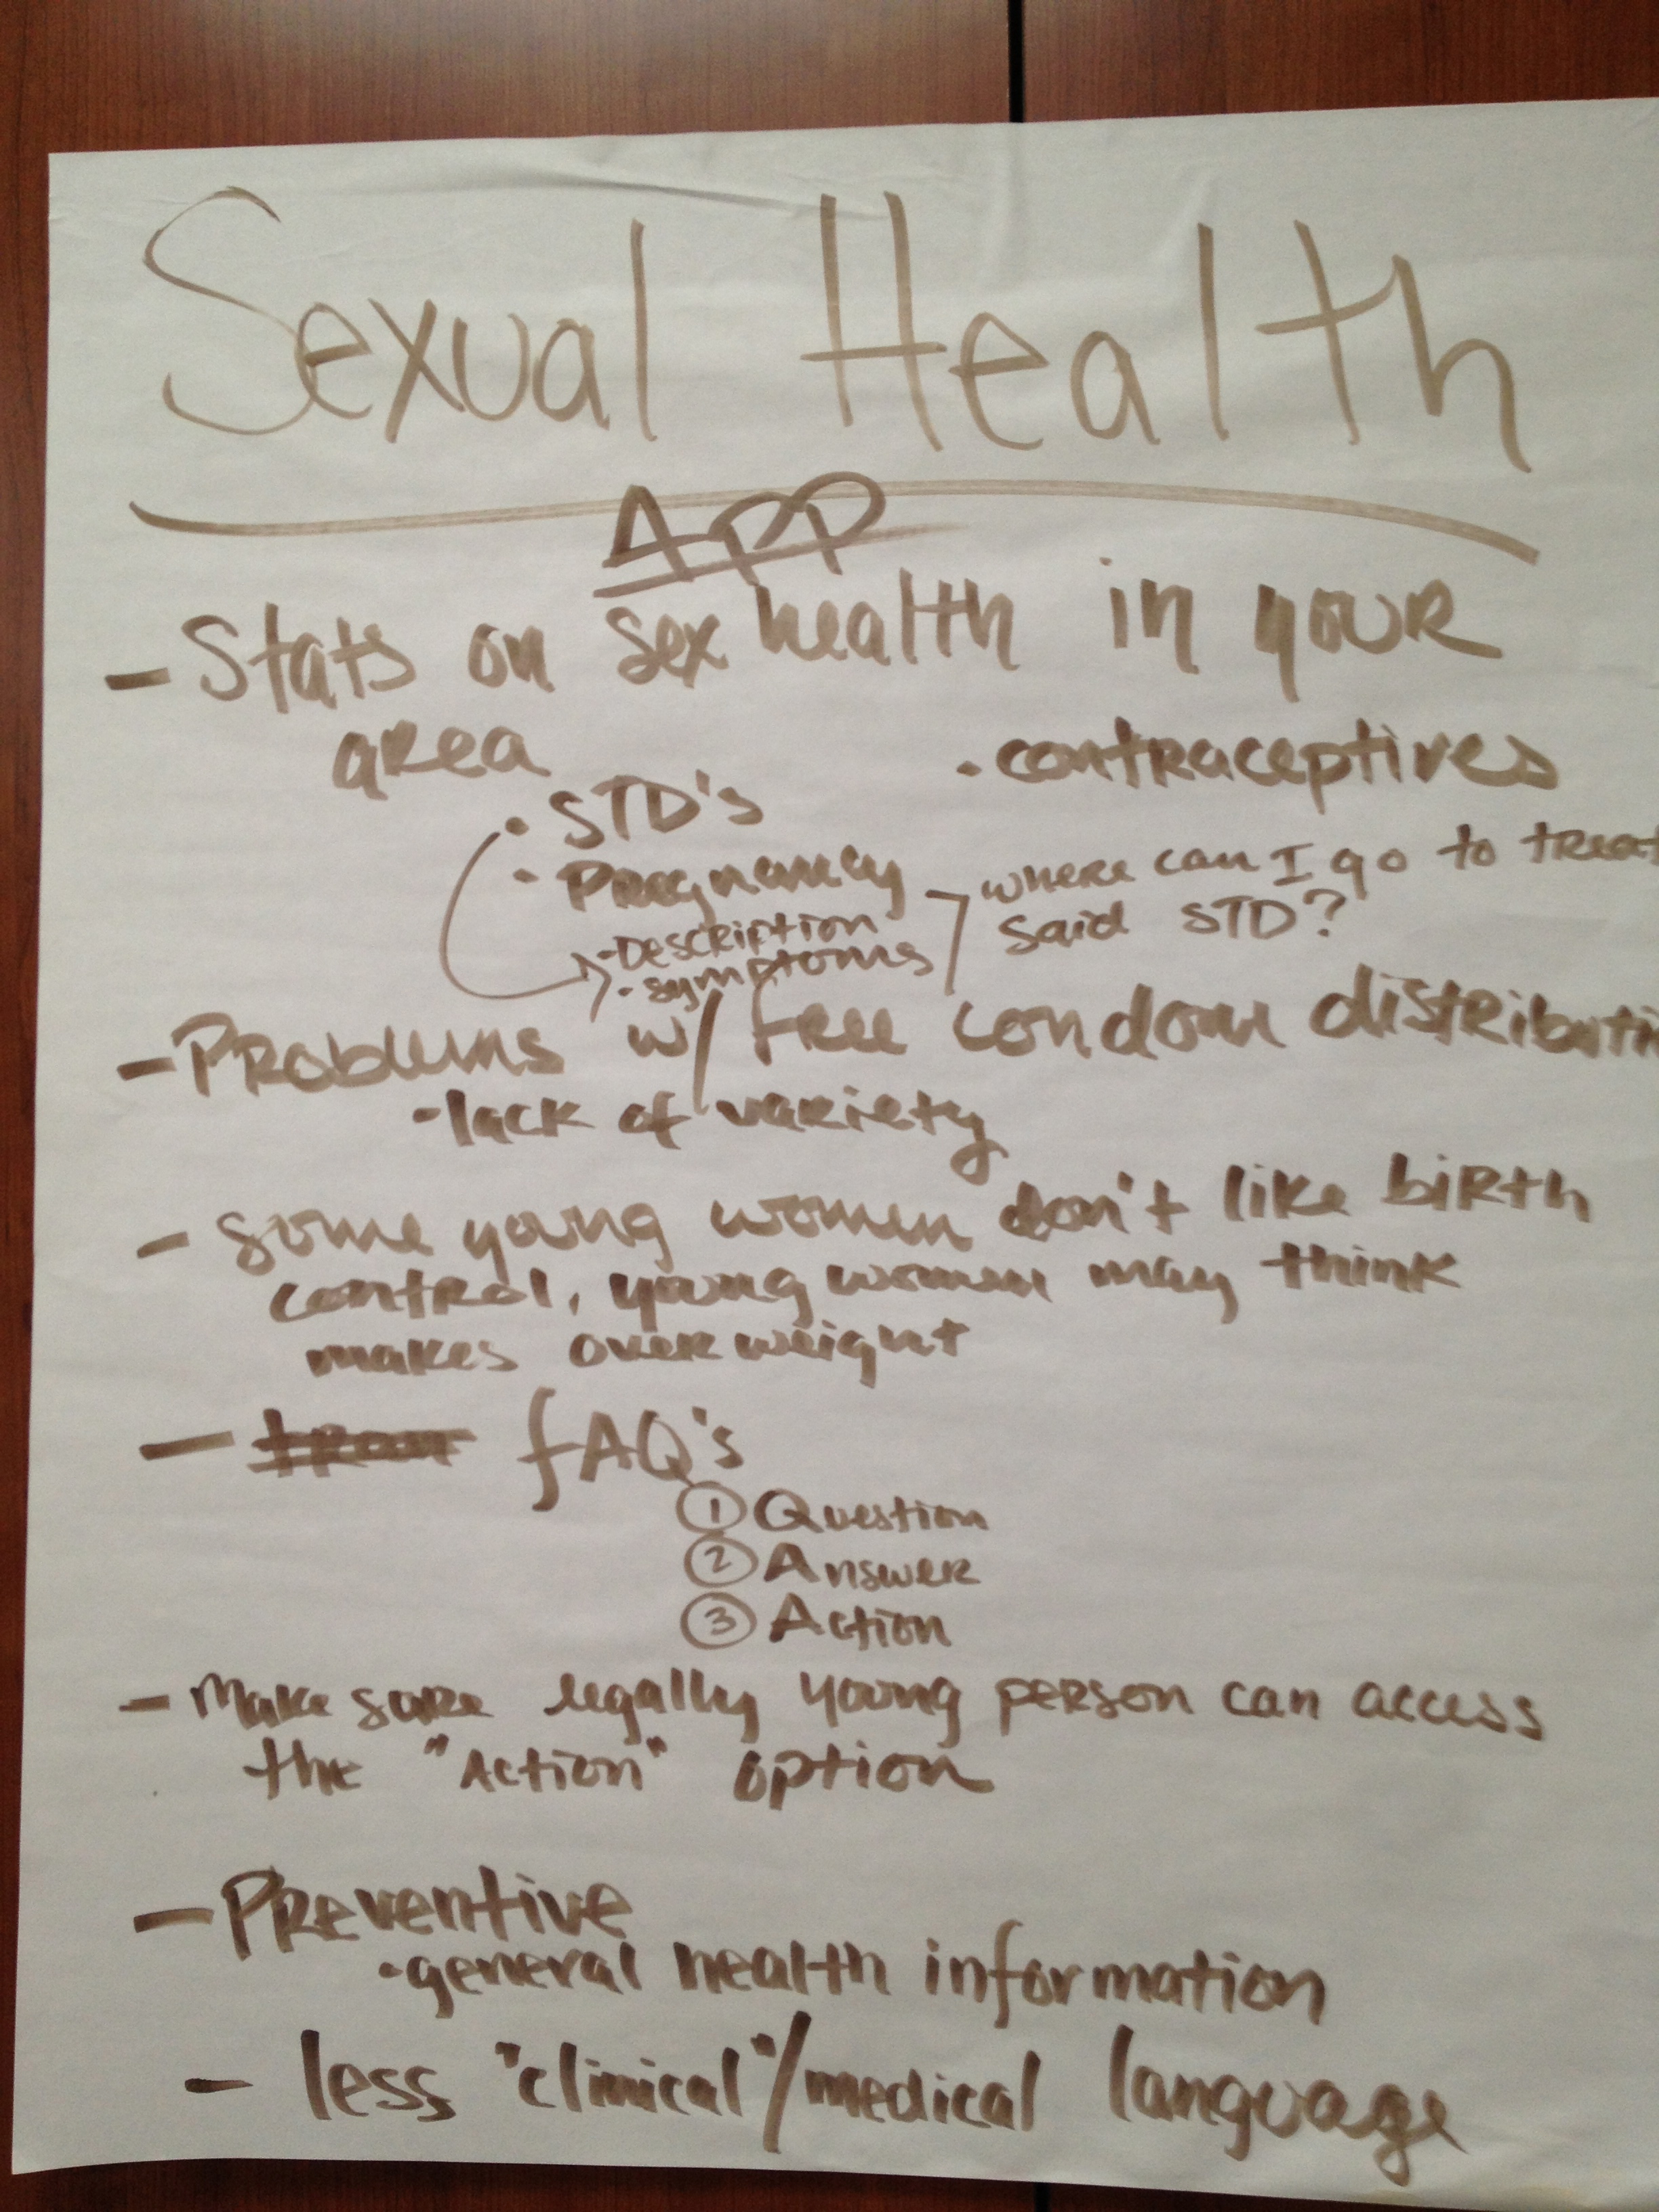 Sexual Health
APP
- Stats on sex health in your
area
· contraceptives
· STD's
· Pregnancy
where can I go to treat
said STD?
· Description
· symptoms
- Problems w/ free condom distributi
· lack of variety
- some young women don't like birth
control, young women may think
makes overweight
- fAQ's
① Question
② Answer
③ Action
- Make sure legally young person can access
the "Action" option
- Preventive
· general health information
- less "clinical"/medical language